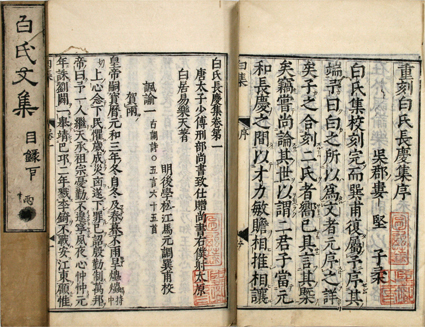 重刻白氏長慶集序
吳郡婁堅子柔
白氏集校刻完而巽甫復屬予序其
端予曰白之所以爲文者元序之詳
矣予之合刻二氏者嚮已具言其槩
矣竊嘗尚論其世以謂二君子當元
和長慶之間以才力敏贍相推相讓
白集
序
白氏長慶集卷第一
唐太子少傅刑部尚書致仕贈尚書右僕射太原
白居易樂天著
明後學松江馬元調巽甫校
諷諭一 古調詩五言 六十五首
賀雨
皇帝嗣寶曆元和三年冬自冬及春暮不雨旱爞爞
上心念下民懼歲成災凶遂下罪己詔殷勤制萬邦
帝曰予一人繼天承祖宗憂勤不遑寧夙夜心忡忡元
年誅劉闢一舉靖巴邛二年戮李錡不戰安江東顧惟
白氏文集
目錄下